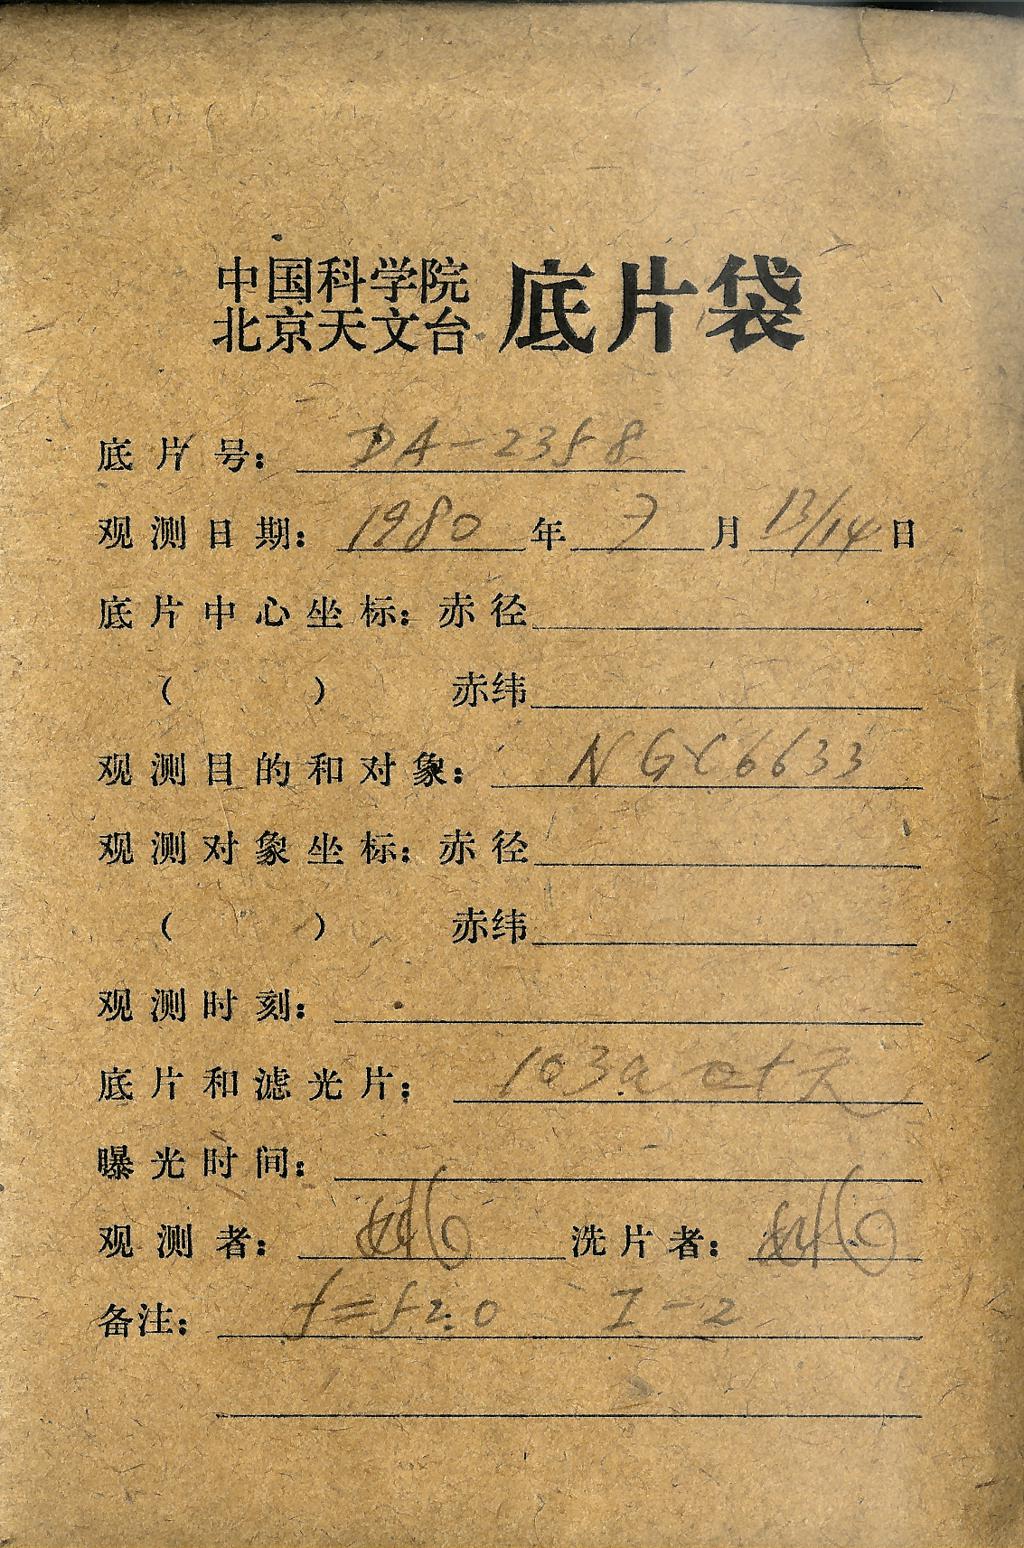 中国科学院
北京天文台
底片袋
底片号: DA-2358
观测日期: 1980年7月13/14日
底片中心坐标: 赤径
( ) 赤纬
观测目的和对象: NGC6633
观测对象坐标: 赤径
( ) 赤纬
观测时刻:
底片和滤光片: 103a 无
曝光时间:
观测者: 洗片者:
备注: f=52.0 I-2